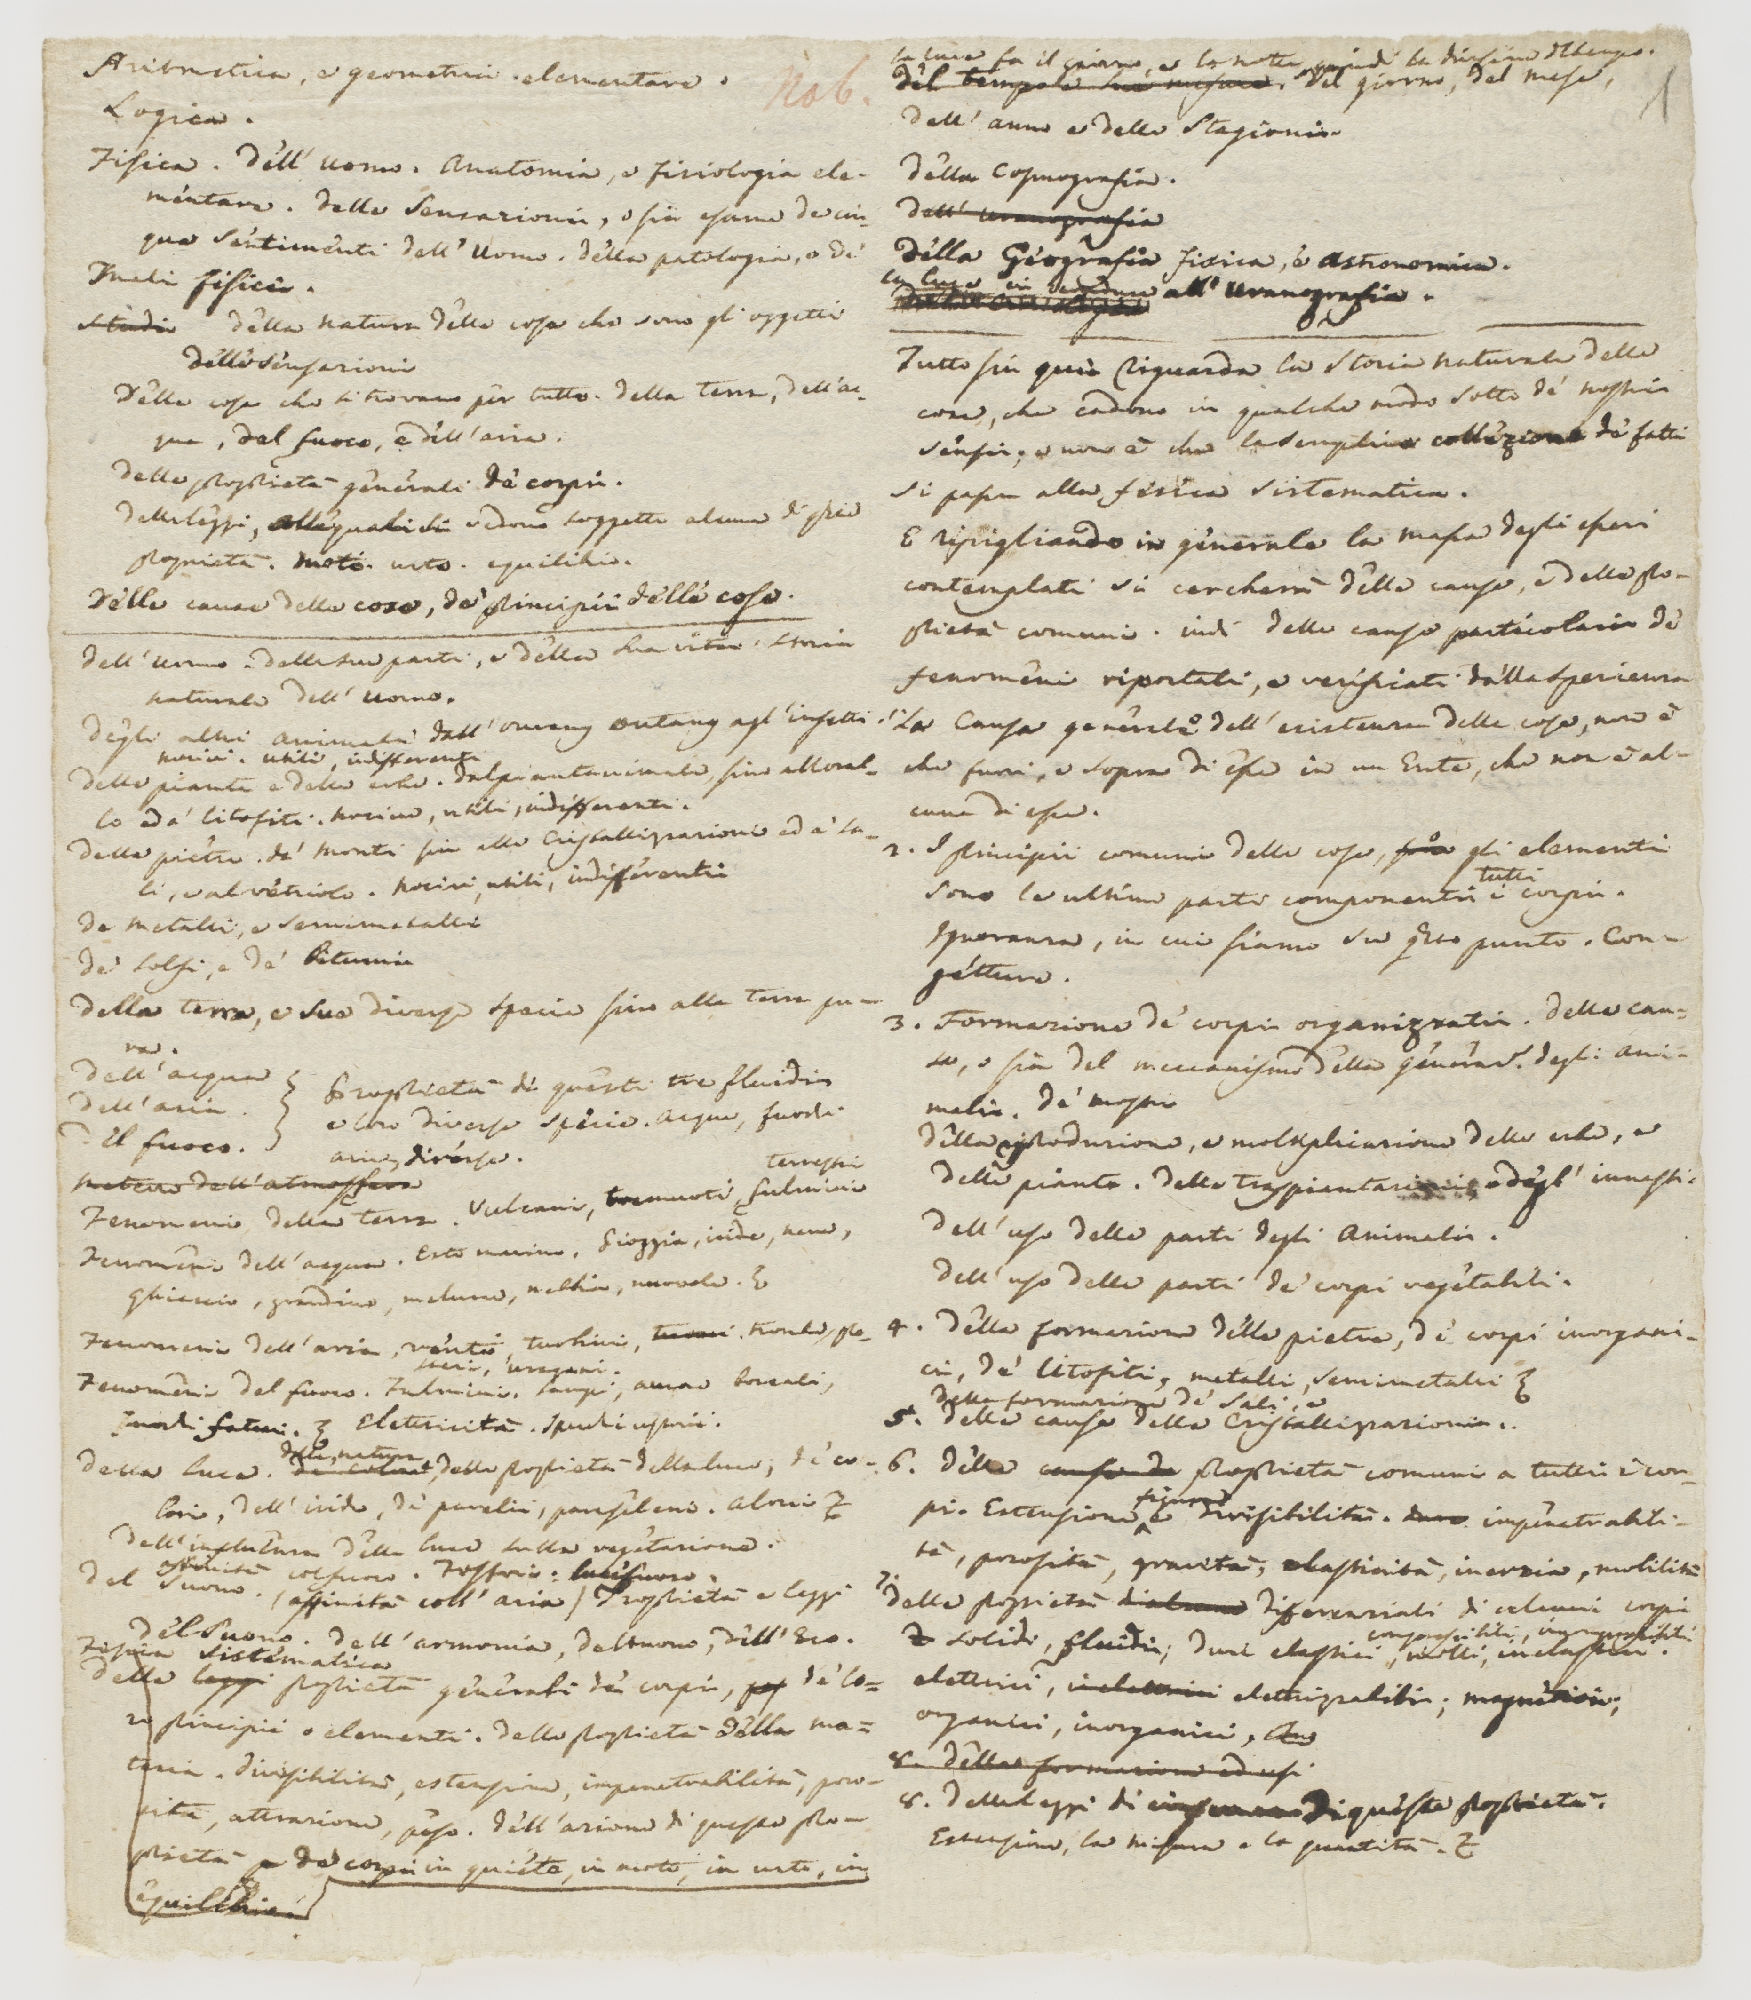 Aritmetica, e geometria elementare.
Nob.
Logica.
Fisica. Dell' Uomo. Anatomia, e fisiologia ele-
mentare. Delle Sensazioni, o sia esame de cin-
que sentimenti dell' Uomo. Della patologia, o de'
mali fisici.
Studio Della natura delle cose che sono gli oggetti
delle sensazioni
Delle cose che si trovano per tutto. Della terra, dell'ac-
qua, del fuoco, e dell'aria.
Delle proprietà generali de' corpi.
Delle leggi, alle quali si vedono soggette alcune di queste
proprietà. Moto. urto. equilibrio.
Delle cause delle cose, de' principii delle cose.
Dell' Uomo. Delle sue parti, e della sua vita. Storia
naturale dell' uomo.
Degli altri animali dall' ourang outang agl' insetti.
nocivi. utili, indifferenti
Delle piante e delle erbe. Dal piantanimale sino al coral-
lo ed a' litofiti. Nocive, utili, indifferenti.
Delle pietre. de' monti sin alle Cristallizzazioni ed a' sa-
li, e al vetriolo. Nocivi, utili, indifferenti
De metalli, e semimetalli
De' Solfi, e de' Bitumi
Della terra, e sue diverse specie sino alla terra pu-
ra.
Dell'acqua
Dell'aria.
Del fuoco.
Proprietà di questi tre fluidi
e loro diverse specie. acque, fuochi
arie diverse.
Meteore dell'atmosfera
terrestri
Fenomeni della terra. Vulcani, tremuoti, fulmini
Fenomeni dell'acqua. Esto marino. Pioggia, iride, neve,
ghiaccio, grandine, meteore, nebbia, nuvole.
Fenomeni dell'aria, venti, turbini, tuoni, trombe, pro-
uregani.
Fenomeni del fuoco. Fulmini. Lampi, aurore boreali,
fuochi fatui. Elettricità. Specchi ustorii.
della natura
Della luce. de' colori, delle proprietà della luce, de' co-
lori, dell' iride, de' parelii, paraseleni. aloni
Dell'influenza della luce sulla vegetazione.
affinità col fuoco. Fosforo.
Del Suono. (affinità coll' aria) Proprietà e leggi
del Suono. Dell'armonia, del tuono, dell' Eco.
Fisica Sistematica
Delle leggi proprietà generali de' corpi, de' lo-
ro principii o elementi. Delle proprietà della ma-
teria. divisibilità, estensione, impenetrabilità, poro-
sità, attrazione, peso. Dell'azione di queste pro-
prietà de' corpi in quiete, in moto, in urto, in
equilibrio.
1
La luce fa il giorno, e la notte, quindi la divisione del tempo.
del tempo e sue misure. Del giorno, del mese,
dell' anno e delle Stagioni.
Della Cosmografia.
Dell' Uranografia
Della Geografia fisica, e astronomica.
La luce in all' Uranografia.
Tutto sin qui riguarda la Storia naturale delle
cose, che cadono in qualche modo sotto de' nostri
sensi; e non è che la semplice collezione de' fatti
Si passa alla fisica sistematica.
E ripigliando in generale la massa degli esseri
contemplati si cercherà delle cause, e delle pro-
prietà comuni. indi delle cause particolari de'
fenomeni riportati, e verificati dalla sperienza
1. La Causa generale dell' esistenza delle cose, non è
che fuori, e sopra di esse in un Ente, che non è al-
cuna di esse.
2. I principii comuni delle cose, gli elementi
tutti
Sono le ultime parti componenti i corpi.
Ignoranza, in cui siamo su q.sto punto. Con-
getture.
3. Formazione de' corpi organizzati. Delle cau-
se, o sia del meccanismo della generaz.e degli ani-
mali. De' mostri
Della riproduzione, e moltiplicazione delle erbe, e
delle piante. Delle traspiantazioni, e degl' innesti.
Dell' uso delle parti degli Animali.
Dell' uso delle parti de' corpi vegetabili.
4. Della formazione delle pietre, de' corpi inorgani-
ci, de' litofiti, metalli, semimetalli
della formazione de' Sali, e
5. delle cause delle Cristallizzazioni.
6. Delle cause de proprietà comuni a tutti i cor-
figura
pi. Estensione e divisibilità. impenetrabili-
tà, porosità, gravità, elasticità, inerzia, mobilità
7. Delle proprietà differenziali di alcuni corpi
compressibili, incompressibili
solidi, fluidi, duri elastici, molli, inelastici.
elettrici, inelettrici elettrizzabili; magnetici;
organici, inorganici,
8. Della formazione ed usi
8. Delle Leggi di di queste proprietà.
Estensione, la misura e la quantità.